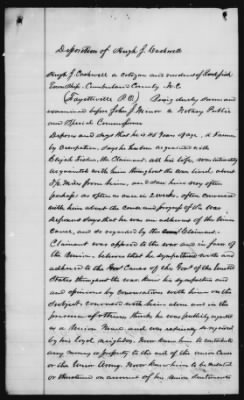 Deposition of Hugh J. Cashwell
Hugh J. Cashwell a citizen and resident of Rockfish
Township, Cumberland County N.C.
(Fayetteville P.O.) Being duly sworn and
examined before John J. Minor a Notary Public
and Special Commissioner
Deposes and says that he is years of age, a farmer
by occupation, Says he has been acquainted with
Elijah Fisher, the Claimant, all his life, was intimately
acquainted with him throughout the war, lived about
miles from him, and saw him very often
perhaps as often as once a week, often conversed
with him about the causes and progress of the war
Deponent says that he was an adherent of the Union
Cause, and so regarded by the Claimant.
Claimant was opposed to the war and in favor of
the Union, believes that he sympathized with and
adhered to the Cause of the Govt of the United
States throughout the war. Knew his sympathies and
and opinions by conversations with him on the
subject. Conversed with him alone and in the
presence of others. think he was publicly reputed
as a Union Man and was entirely so regarded
by his loyal neighbors. Never knew him to contribute
any money or property to the aid of the union Cause
or the Union Army. Never knew him to be molested
or threatened on account of his Union Sentiments